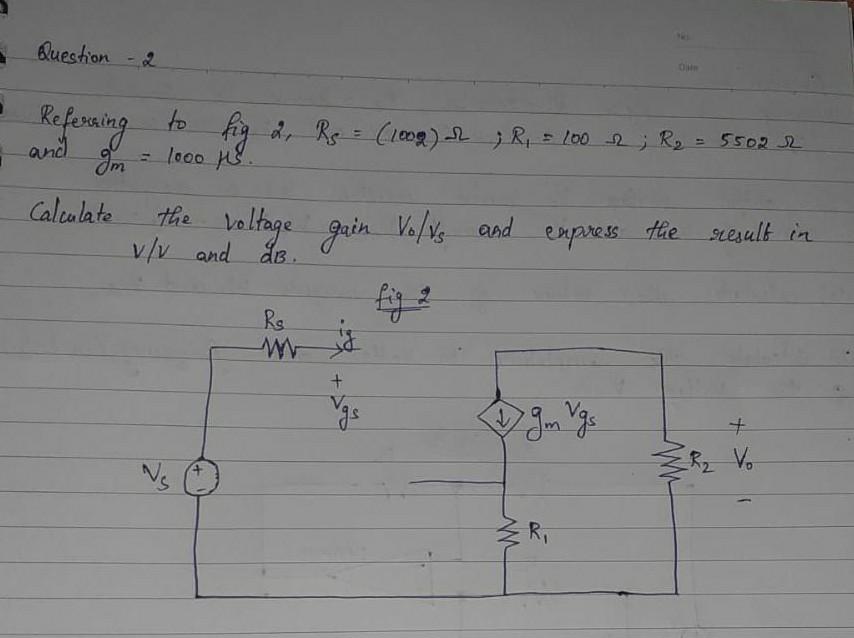 No.
Date
Question - 2
Referring to fig 2, Rs = (1002) Ω ; R1 = 100 Ω ; R2 = 5502 Ω
and gm = 1000 μS.
Calculate the voltage gain Vo/Vs and express the result in
V/V and dB.
fig 2
Rs
ig
+
Vgs
gm Vgs
+
R2 Vo
-
Vs
+
-
R1